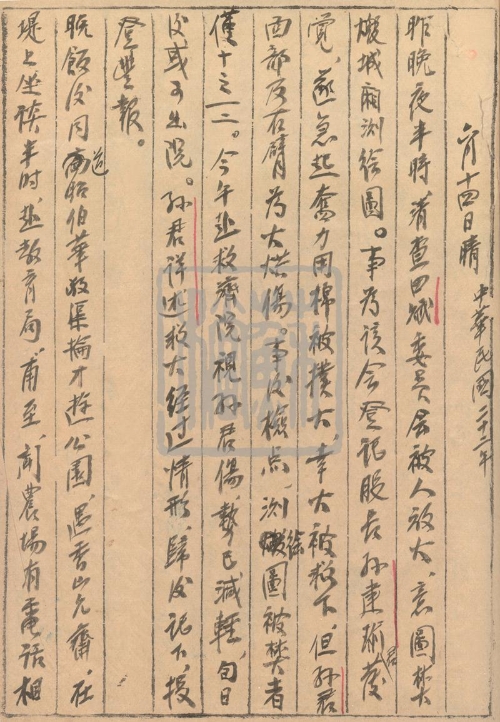 六月十四日晴 中華民國二十三年
昨晚夜半時清查田賦委員會被人放火、意圖焚
燬城廂測繪圖。事為該會登記股長孫連珊君發
覺、遂急起奮力用棉被撲火、幸火被救下、但孫君
面部及右臂為火烘傷。事後檢点、測繪圖被焚者
僅十之一二。今午赴救濟院視孫君傷、勢已減輕、旬日
後或可出院。孫君詳述救火經過情形、歸後記下、投
登豐報。
晚飯後同道昭伯華收渠掄才遊公園、遇香山允齋、在
堤上坐談半时、赴教育局、甫至、聞農場有電话相